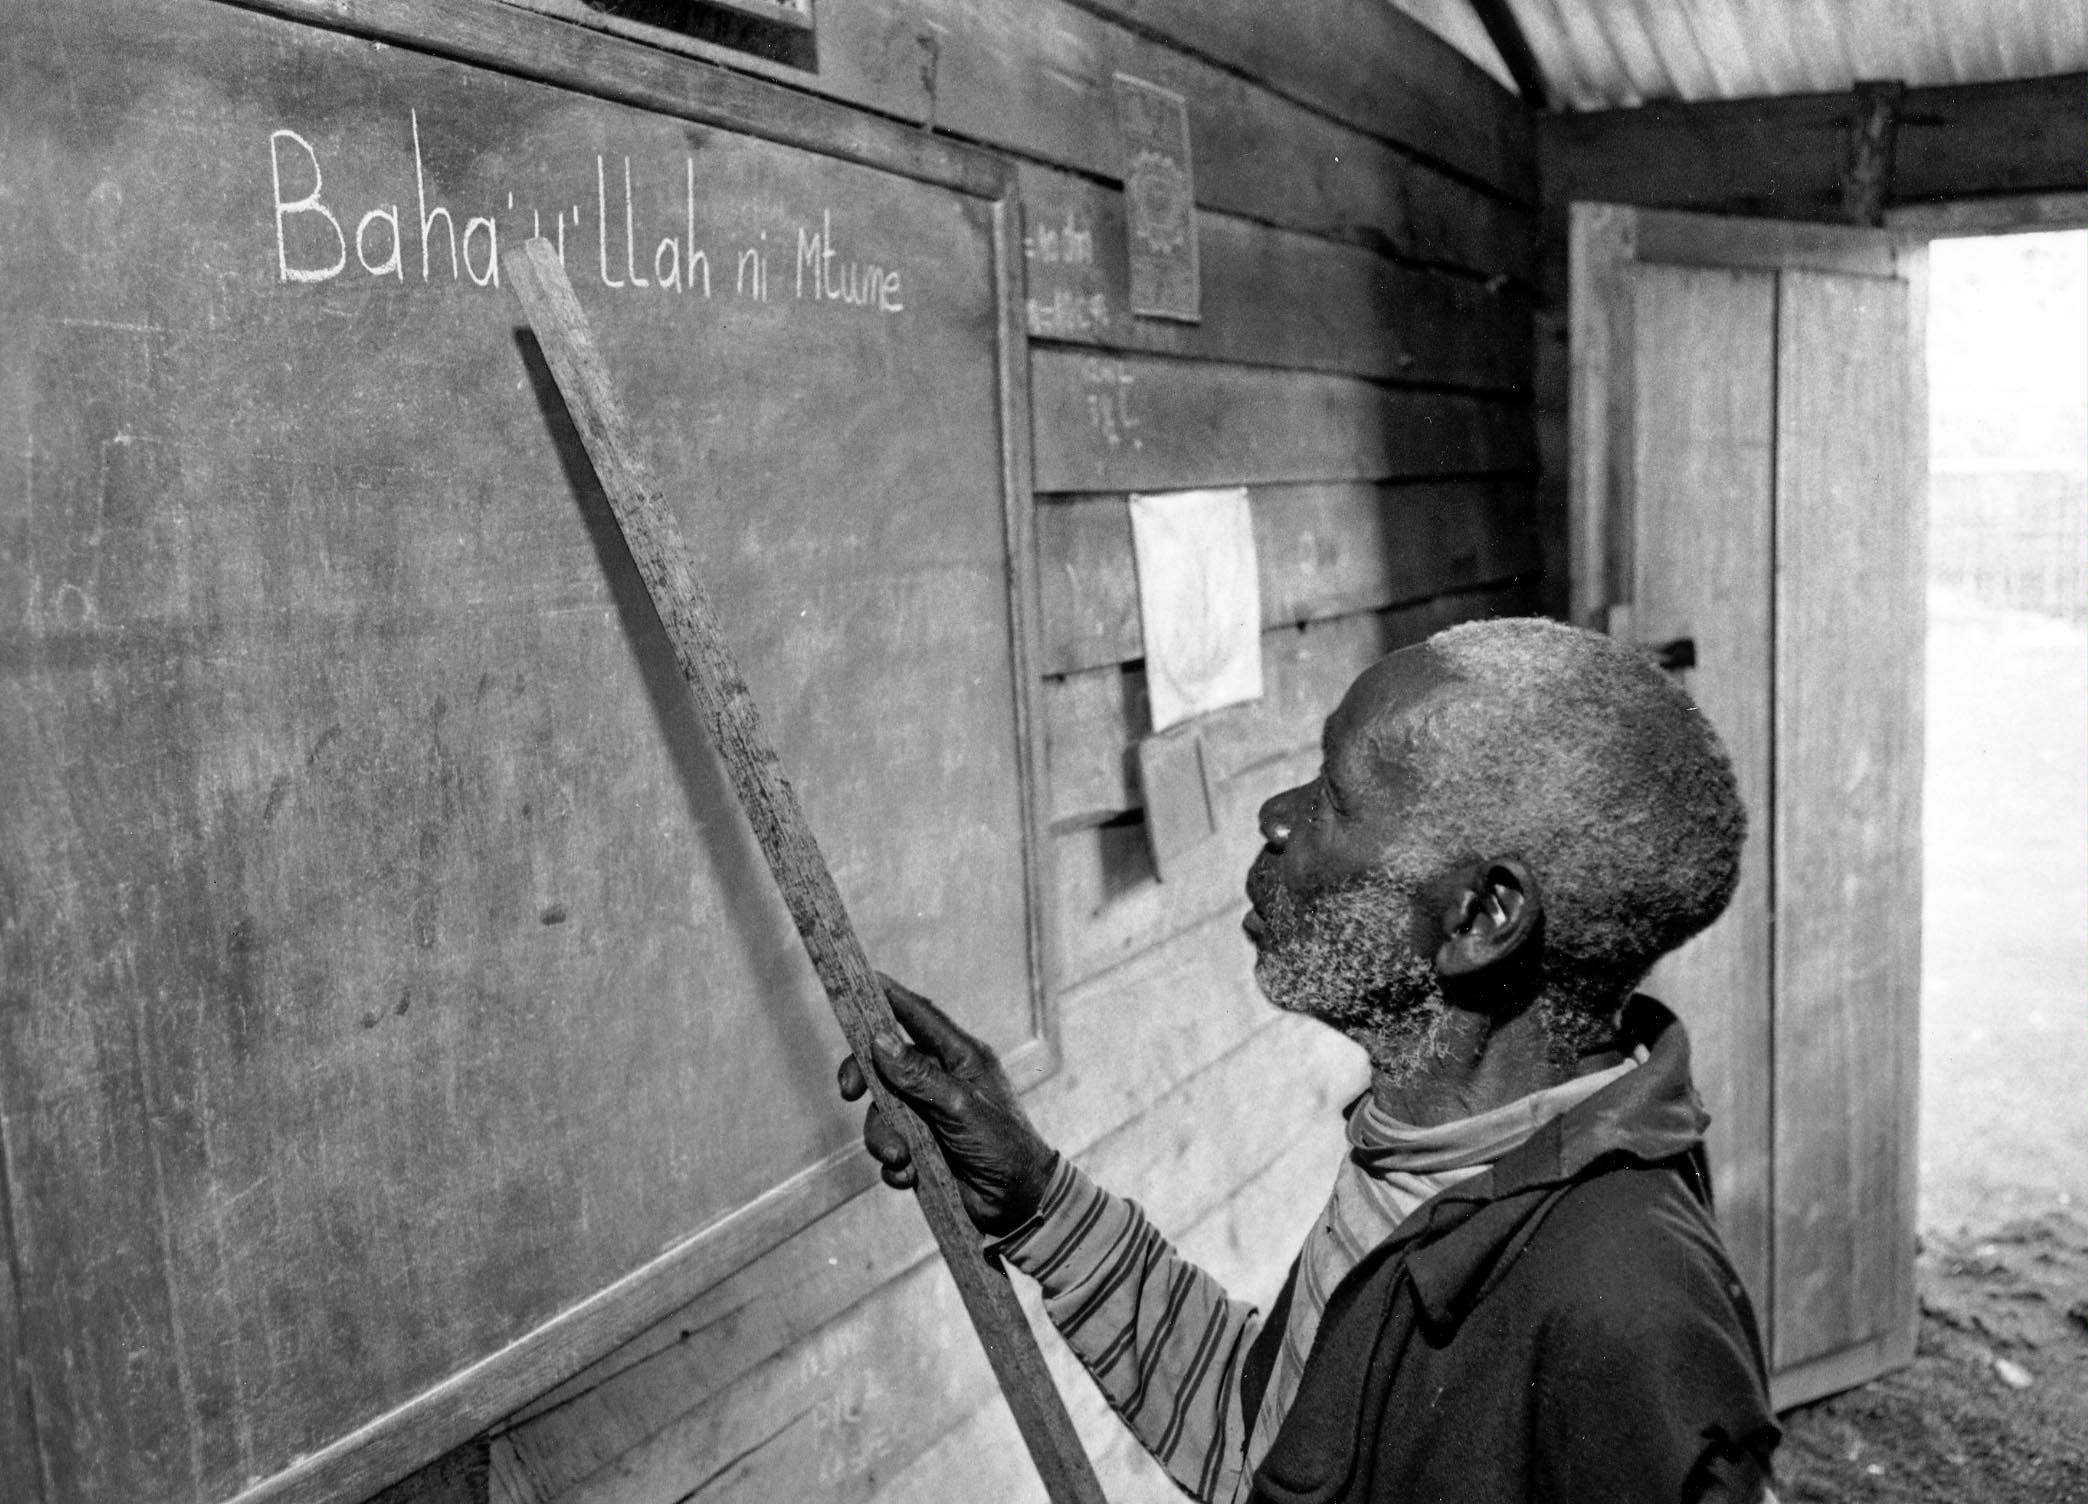 Baha'u'llah ni Mtume